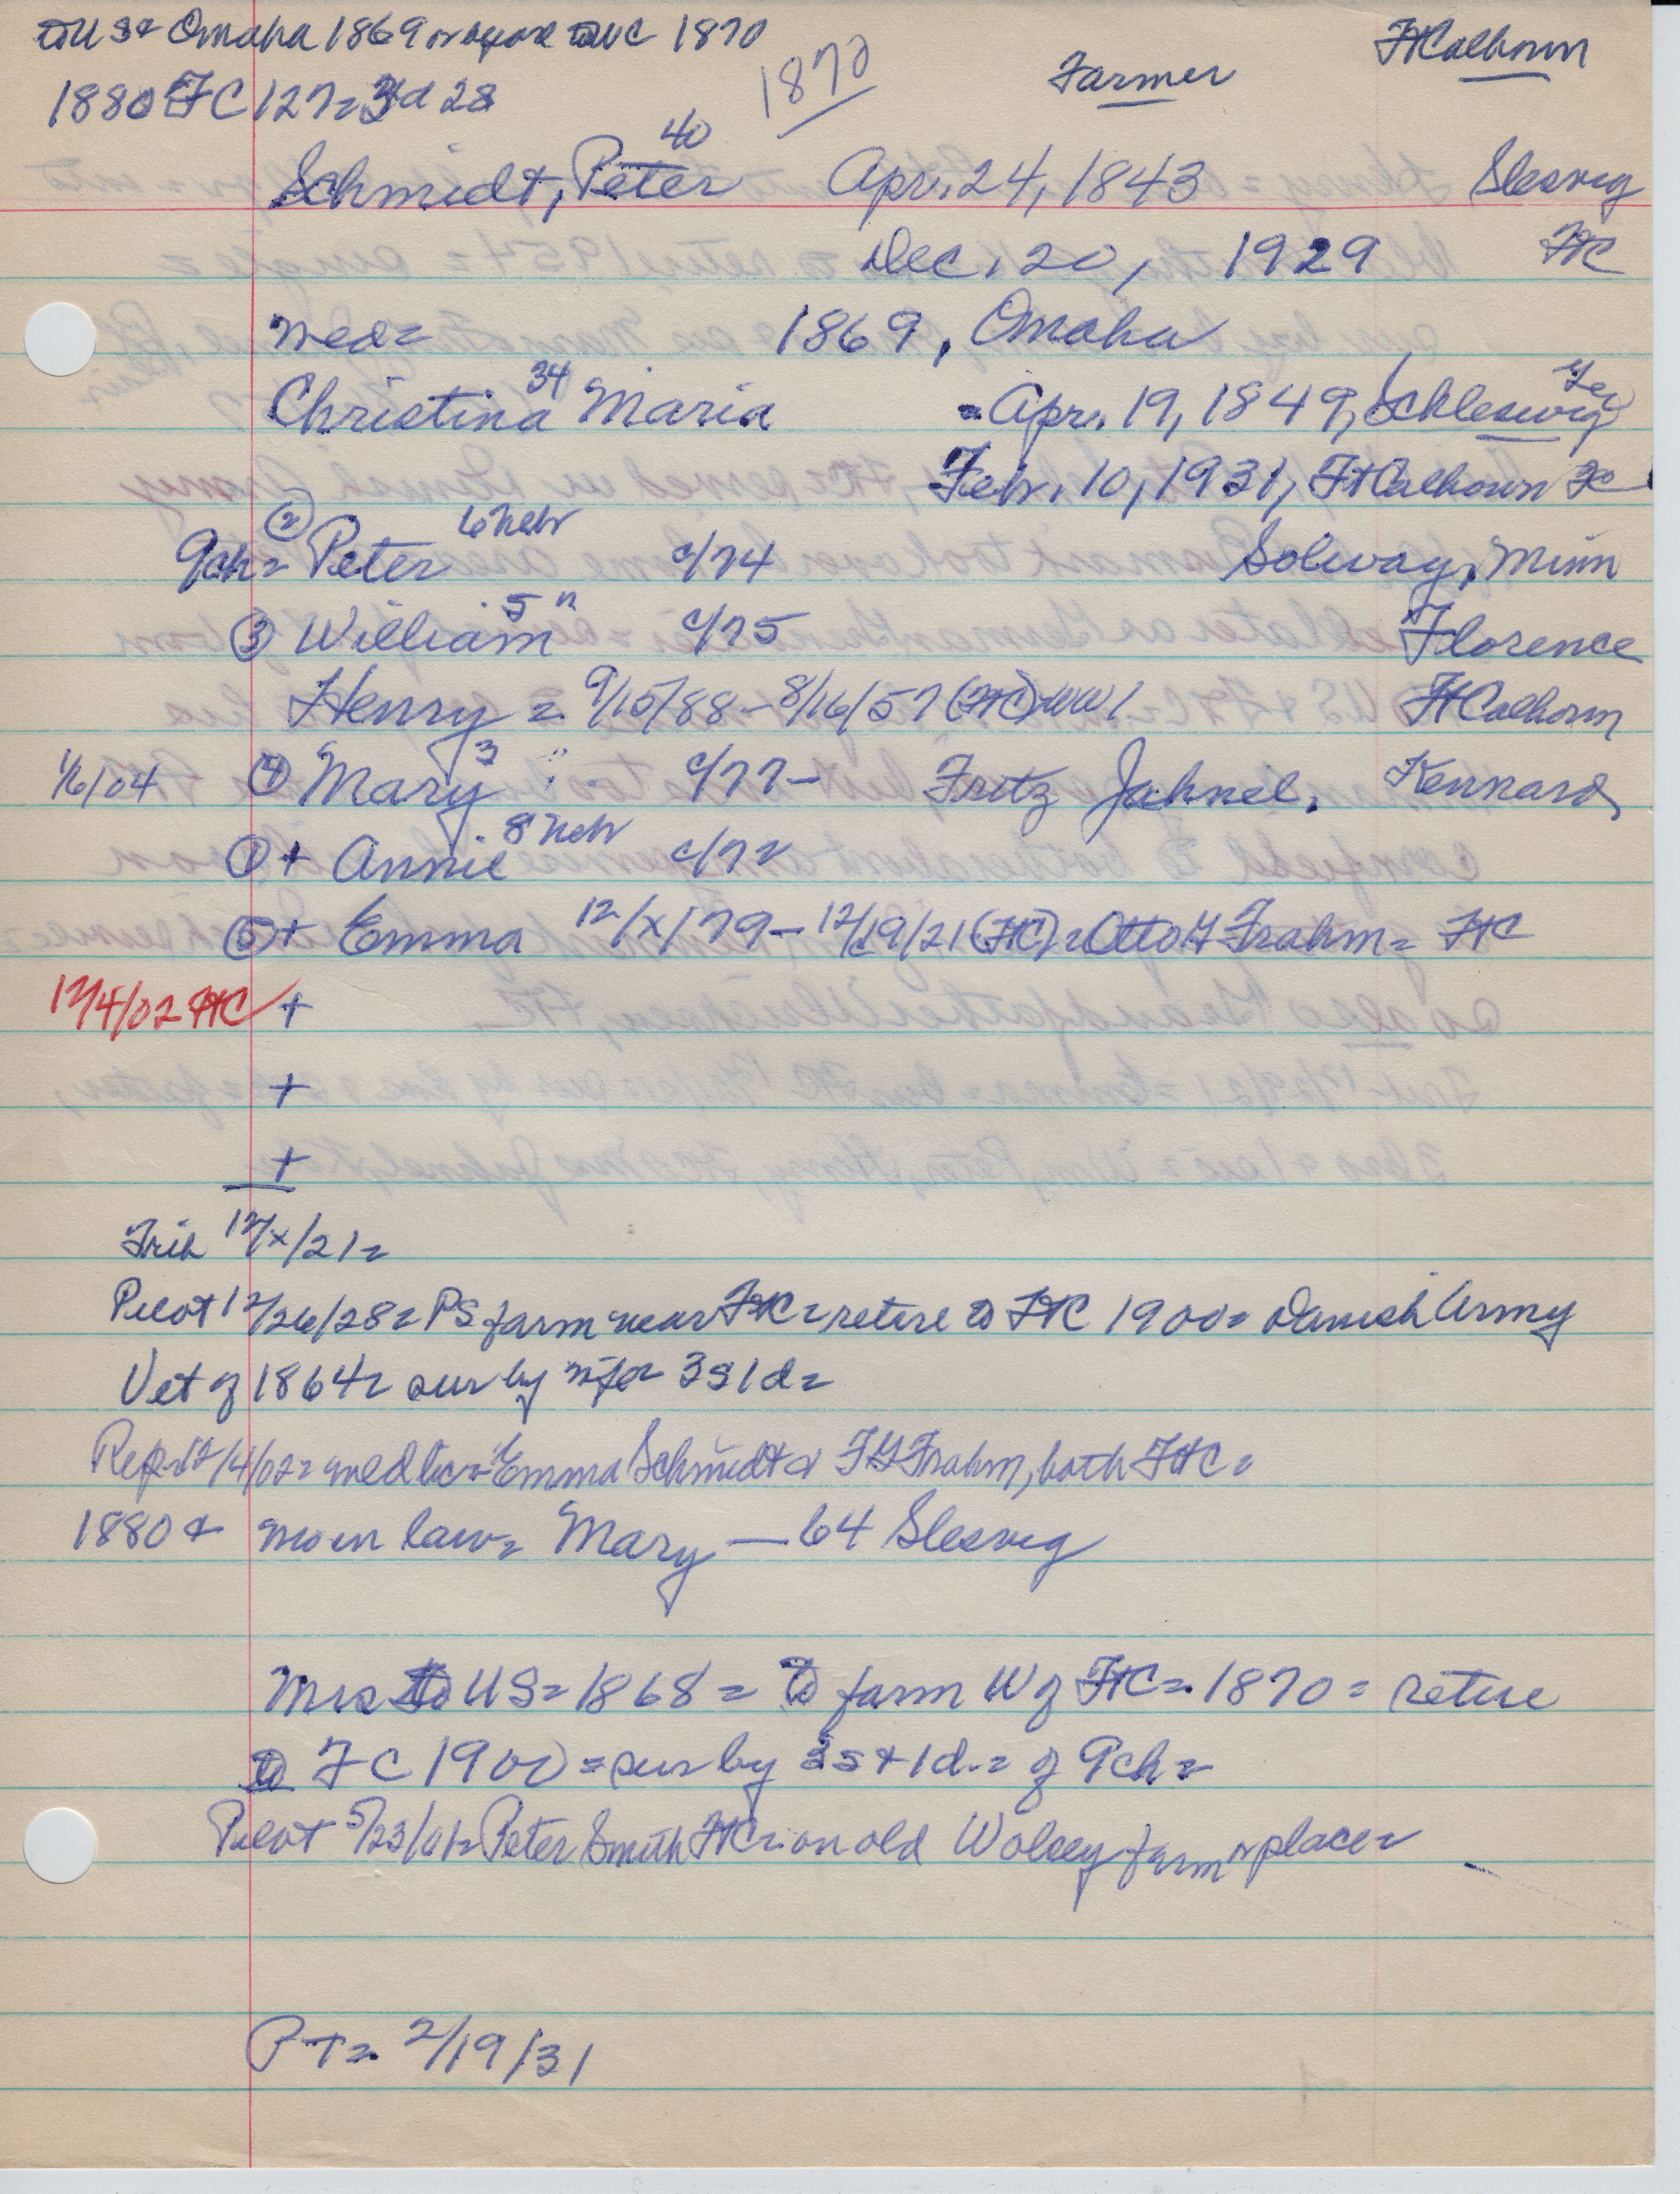 to US & Omaha 1869 to WC 1870
FtCalhoun
1870
Farmer
1880 FC 127= 3d 28
40
Schmidt, Peter Apr. 24, 1843 Slesvig
Dec. 20, 1929 FtC
med= 1869, Omaha
34 Ger
Christina Maria - Apr. 19, 1849, Schleswig
Febr. 10, 1931, FtCalhoun FC
② 6 Nebr
9ch= Peter c/74 Solway, Minn
5 "
③ William c/75 Florence
Henry = 9/15/88-8/16/57 (FtC) WW1 FtCalhoun
3 "
1/6/04 ④ Mary c/77- Fritz Jahnel, Kennard
8 Nebr
① + Annie c/72
⑤ + Emma 12/x/79-12/19/21 (FtC) = Otto G Frahm= FtC
12/4/02 FtC +
+
+
Trib 12/x/21=
Pilot 12/26/28= PS farm near FtC= retire to FtC 1900= Danish Army
Vet of 1864= sur by wife 3s 1d=
Rep 12/4/02= wed lic= Emma Schmidt & FG Frahm, both FtC=
1880 & mo in law= Mary — 64 Slesvig
Mrs to US= 1868= to farm W of FtC= 1870= retire
to FC 1900= sur by 3s + 1d.= of 9ch=
Pilot 5/23/01= Peter Smith FtC= on old Wolsey farm or place=
PT= 2/19/31